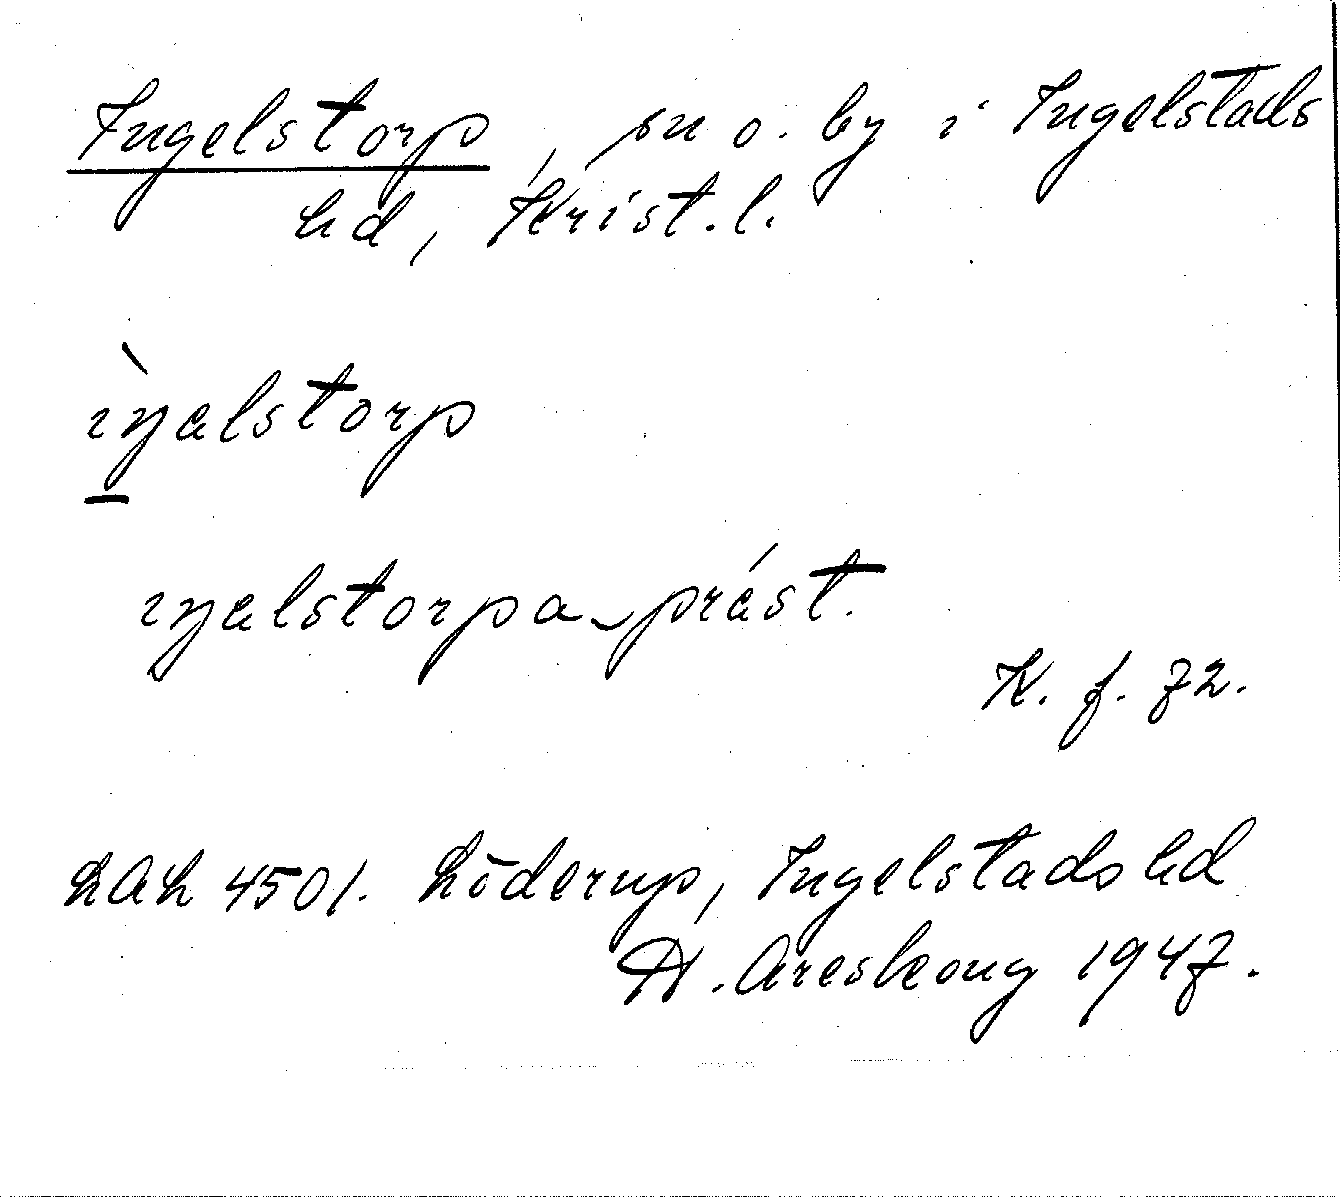 Ingelstorp, sn o. by i Ingelstads
hd, Krist. l.
ìŋalstorp
iŋalstorpa‿prást.
K. f. 72.
LAL 4501. Löderup, Ingelstads hd
A. Areskoug 1947.